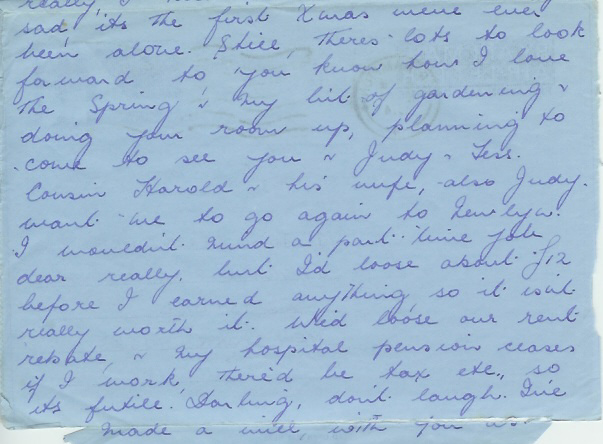 really, I
sad, its the first Xmas weve ever
been alone. Still, theres lots to look
forward to you know how I love
the Spring & my bit of gardening &
doing your room up, planning to
come to see you & Judy & Tess.
Cousin Harold & his wife, also Judy.
want me to go again to Newlyn.
I wouldn't mind a part time job
dear really, but I'd loose about £12
before I earned anything, so it isnt
really worth it. We'd loose our rent
rebate, & my hospital pension ceases
if I work, there'd be tax etc., so
its futile. Darling, don't laugh. I've
made a will, with you as